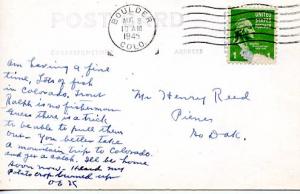 POSTCARD
CORRESPONDENCE
ADDRESS
BOULDER
AUG 8
10 AM
1945
COLO.
UNITED STATES
1
am having a fine
time, Lots of fish
in Colorado, Trout
Ralph is no fisherman
Guess there is a trick
to be able to pull them
out. You better take
a mountain trip to Colorado
and get a catch. I'll be home
soon now. Heard my
Potato crop burned up
Mr Henry Reed
Pierre
So Dak.